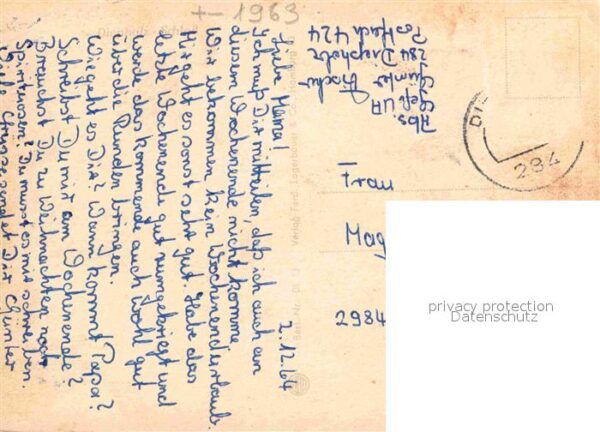 +-1963
2.12.64
Liebe Mama!
Ich muß Dir mitteilen, daß ich auch an
diesem Wochenende nicht komme
Wir bekommen kein Wochenendurlaub.
Mir geht es sonst sehr gut. Habe das
letzte Wochenende gut rumgekriegt und
werde das kommende auch wohl gut
über die Runden bringen.
Wie geht es Dir? Wann kommt Papa?
Schreibst Du mir am Wochenende?
Brauchst Du zu Weihnachten noch
Spirituosen? Du musst es mir schreiben.
Viele Grüsse sendet Dir Günter
Abs.
Gefr. UA
Günter Fischer
284 Diepholz
Postfach 424
DIE
284
Frau
Mag
2984
privacy protection
Datenschutz